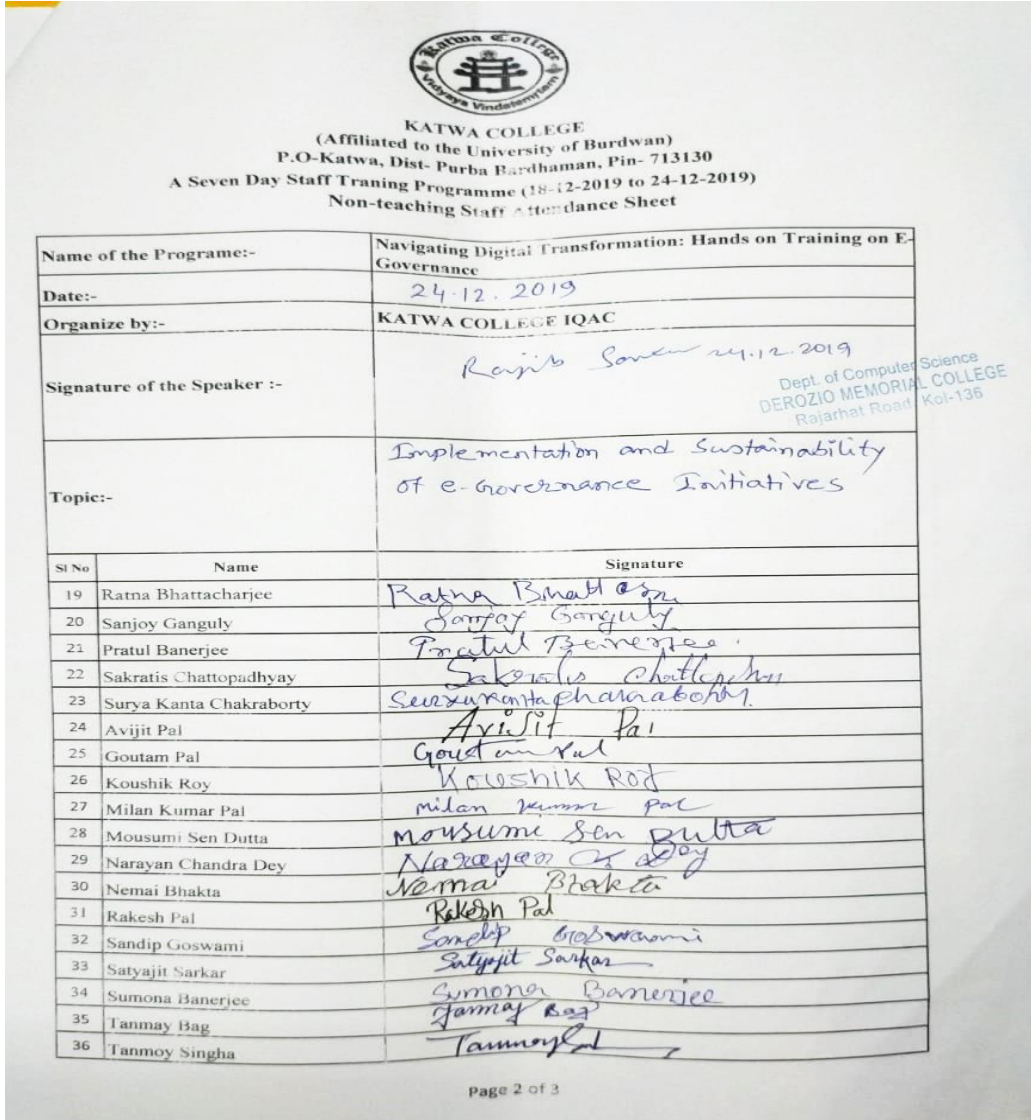 Katwa College
Vidyaya Vindatemrtam
KATWA COLLEGE
(Affiliated to the University of Burdwan)
P.O-Katwa, Dist- Purba Bardhaman, Pin- 713130
A Seven Day Staff Traning Programme (18-12-2019 to 24-12-2019)
Non-teaching Staff Attendance Sheet
Name of the Programe:- Navigating Digital Transformation: Hands on Training on E-
Governance
Date:- 24.12.2019
Organize by:- KATWA COLLEGE IQAC
Signature of the Speaker :- Rajib Sarkar 24.12.2019
Dept. of Computer Science
DEROZIO MEMORIAL COLLEGE
Rajarhat Road, Kol-136
Topic:- Implementation and Sustainability
of e-Governance Initiatives
Sl No Name Signature
19 Ratna Bhattacharjee Ratna
20 Sanjoy Ganguly Sanjoy Ganguly
21 Pratul Banerjee Pratul Banerjee
22 Sakratis Chattopadhyay
23 Surya Kanta Chakraborty
24 Avijit Pal AviJit Pal
25 Goutam Pal Goutam Pal
26 Koushik Roy Koushik Roy
27 Milan Kumar Pal Milan Kumar Pal
28 Mousumi Sen Dutta Mousumi Sen Dutta
29 Narayan Chandra Dey Narayan Ch Dey
30 Nemai Bhakta Nemai Bhakta
31 Rakesh Pal Rakesh Pal
32 Sandip Goswami Sandip Goswami
33 Satyajit Sarkar Satyajit Sarkar
34 Sumona Banerjee Sumona Banerjee
35 Tanmay Bag Tanmay Bag
36 Tanmoy Singha Tanmoy
Page 2 of 3